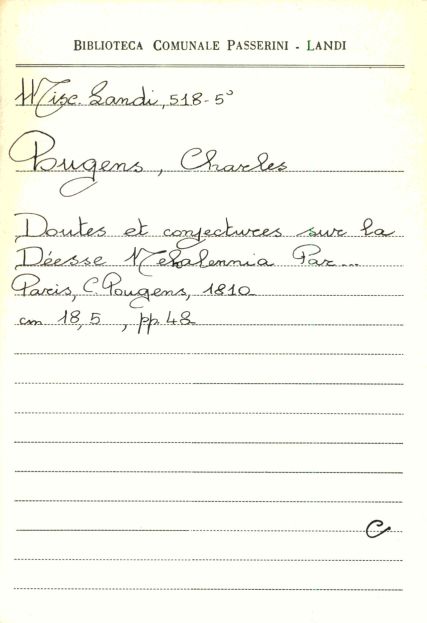 BIBLIOTECA COMUNALE PASSERINI - LANDI
Misc. Landi, 518-5°
Pougens, Charles
Doutes et conjectures sur la
Déesse Nehalennia Par...
Paris, C. Pougens, 1810
cm 18,5 , pp. 48
C